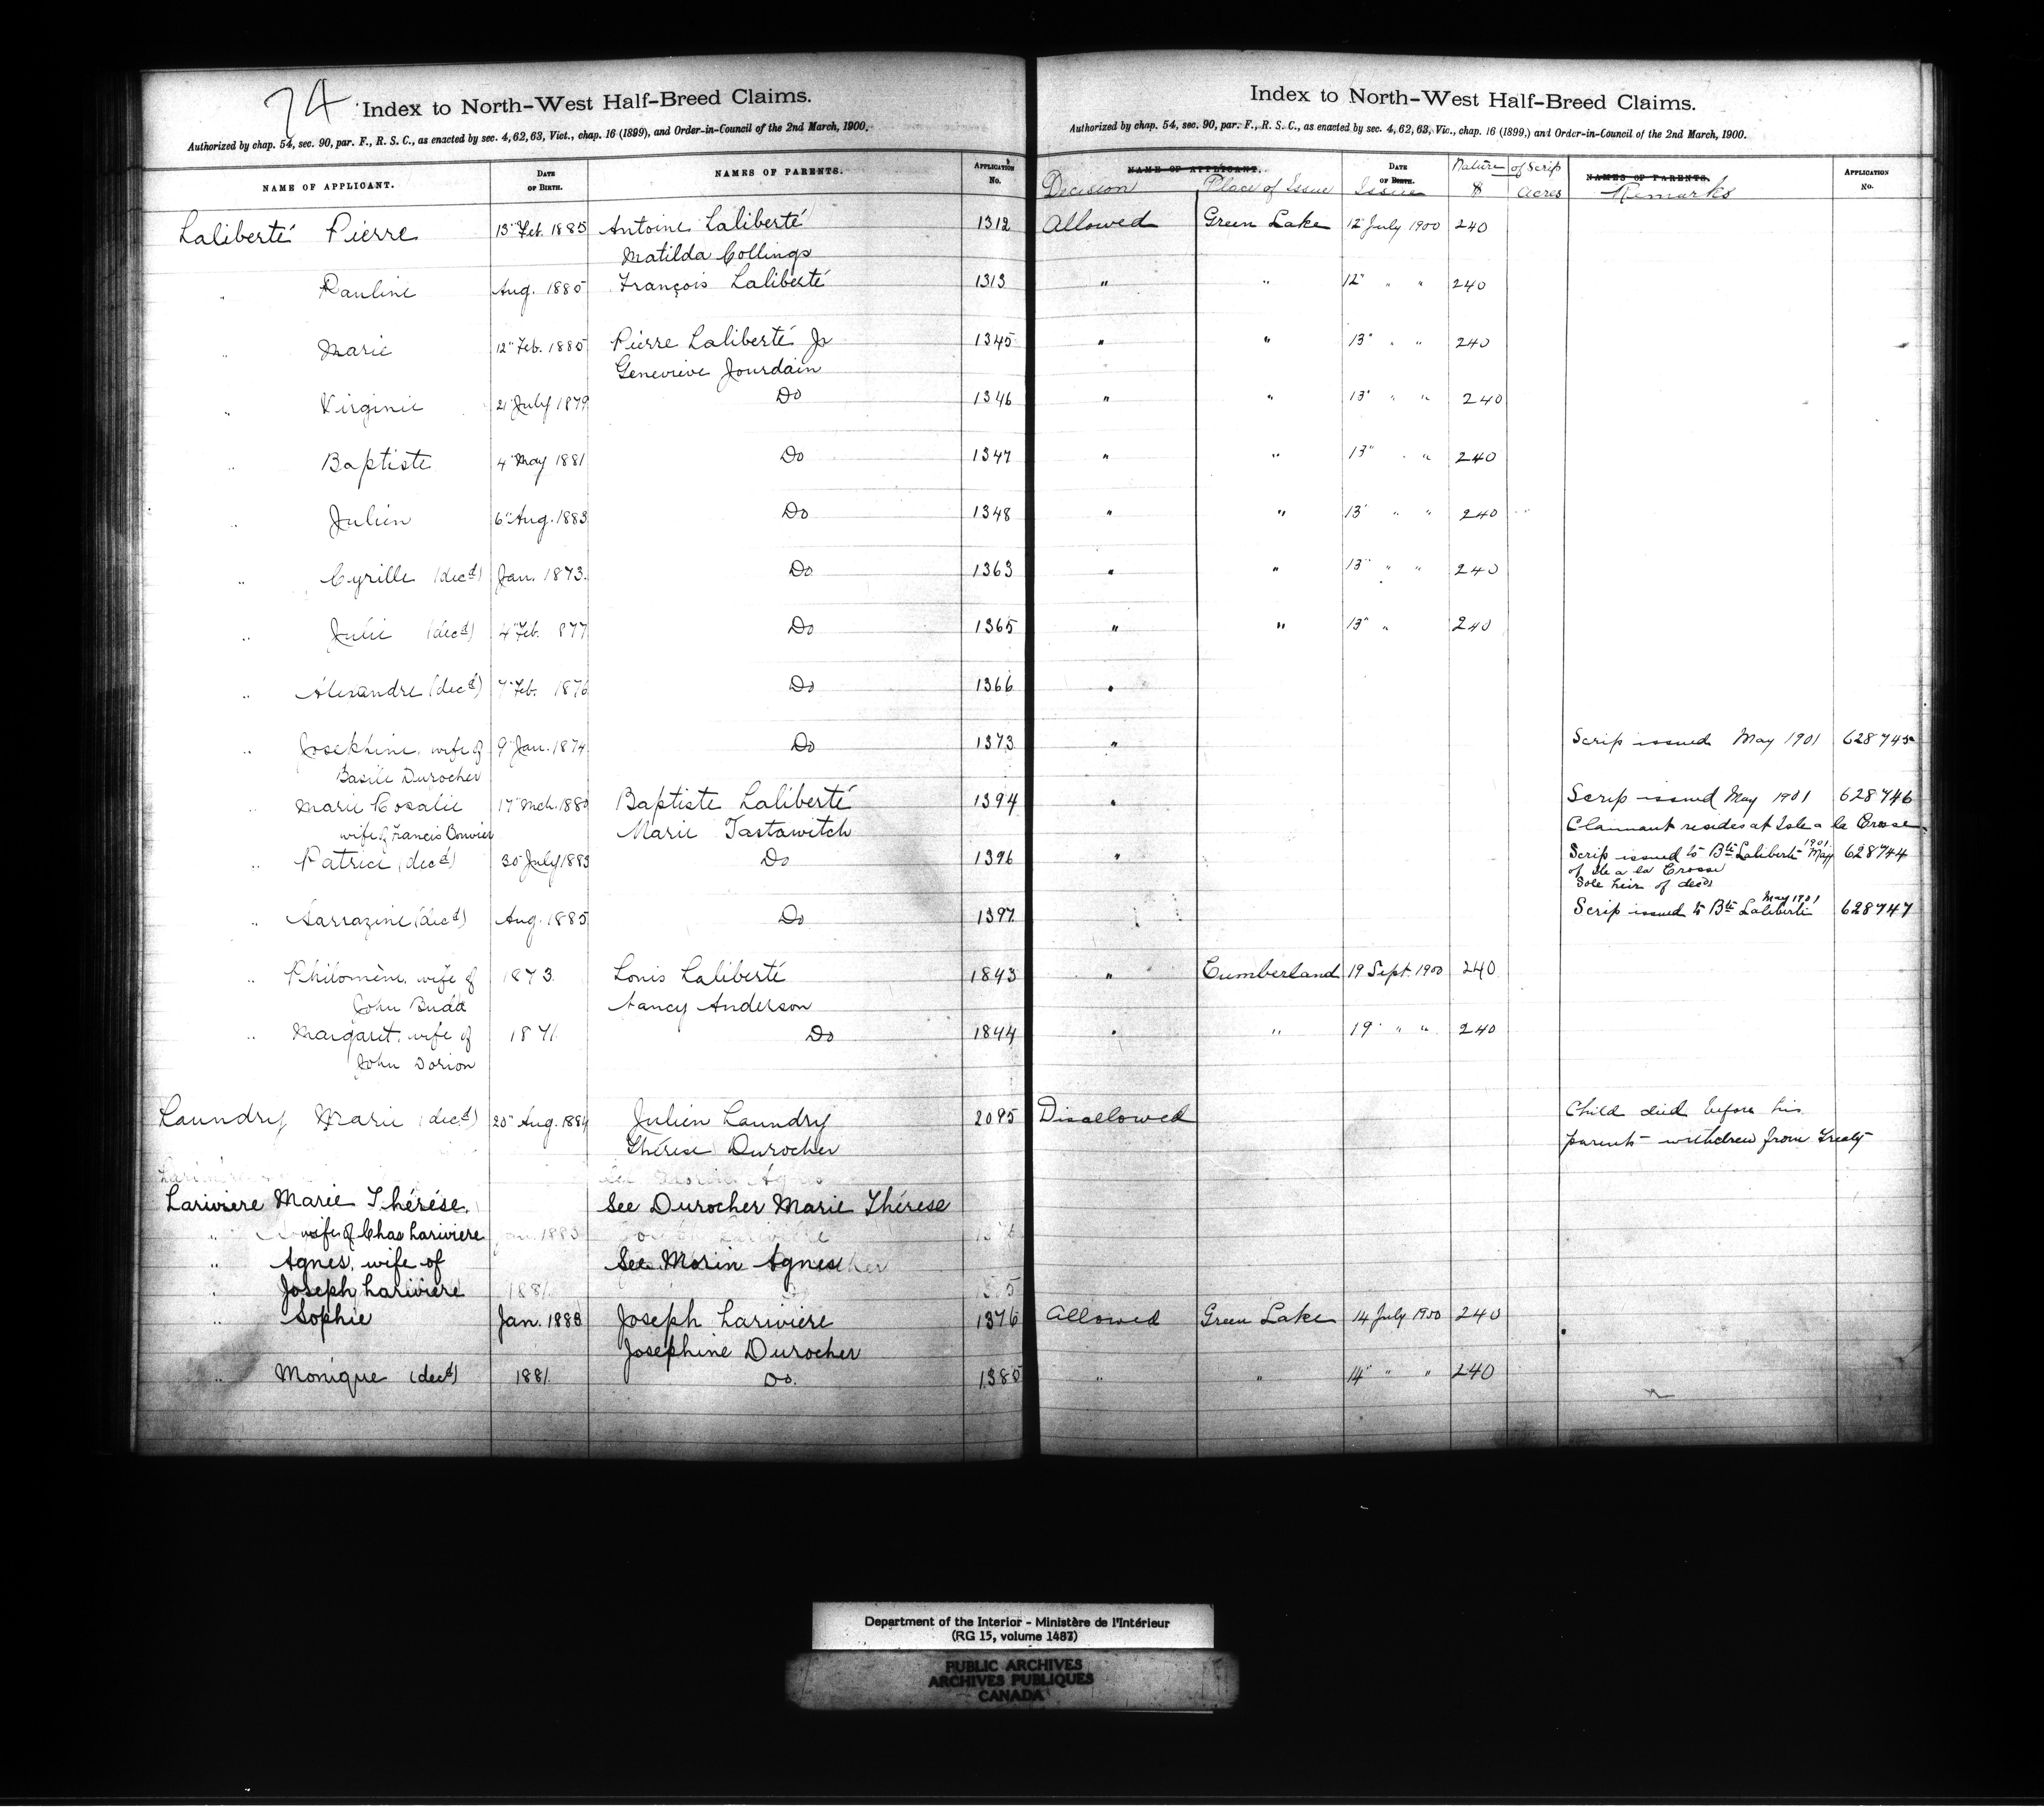 74
Index to North-West Half-Breed Claims.
Authorized by chap. 54, sec. 90, par. F., R. S. C., as enacted by sec. 4, 62, 63, Vict., chap. 16 (1899), and Order-in-Council of the 2nd March, 1900.
NAME OF APPLICANT. DATE OF BIRTH. NAMES OF PARENTS. APPLICATION No.
Laliberté Pierre 13" Feb. 1885 Antoine Laliberté 1312
Matilda Collings
" Pauline Aug. 1885 François Laliberté 1313
" Marie 12" Feb. 1885 Pierre Laliberté Jr 1345
Genevieve Jourdain
" Virginie 21" July 1879 Do 1346
" Baptiste 4" May 1881 Do 1347
" Julien 6" Aug. 1883 Do 1348
" Cyrille (decd) Jan. 1873. Do 1363
" Julie (decd) 4" Feb. 877 Do 1365
" Alexandre (decd) 7" Feb. 1876 Do 1366
" Josephine, wife of 9" Jan. 1874. Do 1373
Basile Durocher
" Marie Rosalie 17" Mch. 1880 Baptiste Laliberté 1394
wife of Francis Bouvier Marie Tastawitch
" Patrice (decd) 30" July 1883 Do 1396
" Sarrazine (decd) Aug. 1885 Do 1397
" Philomène, wife of 1873. Louis Laliberté 1843
John Budd Nancy Anderson
" Margaret, wife of 1871. Do 1844
John Dorion
Laundry Marie (decd) 20" Aug. 1884 Julien Laundry 2095
Thérese Durocher
Lariviere Marie Thérése. See Durocher Marie Thérese
" wife of Chas Lariviere
" Agnes, wife of See Morin Agnes
Joseph Lariviere
" Sophie Jan. 1883 Joseph Lariviere 1376
Josephine Durocher
" Monique (decd) 1881. Do. 1385
Index to North-West Half-Breed Claims.
Authorized by chap. 54, sec. 90, par. F., R. S. C., as enacted by sec. 4, 62, 63, Vic., chap. 16 (1899,) and Order-in-Council of the 2nd March, 1900.
NAME OF APPLICANT. DATE OF BIRTH. Nature of Scrip NAMES OF PARENTS. APPLICATION No.
Decision Place of Issue Issue $ Acres Remarks
Allowed Green Lake 12" July 1900 240
" " 12" " " 240
" " 13" " " 240
" " 13" " " 240
" " 13" " " 240
" " 13" " " 240
" " 13" " " 240
" " 13" " 240
"
" Scrip issued May 1901 628745
" Scrip issued May 1901 628746
Claimant resides at Isle a la Crosse.
" Scrip issued to Bte Laliberté May 1901 628744
of Ile a la Crosse
Sole heir of decd
Scrip issued to Bte Laliberté May 1901 628747
" Cumberland 19 Sept. 1900 240
" " 19" " " 240
Disallowed Child died before his
parents withdrew from Treaty
Allowed Green Lake 14 July 1900 240
" " 14" " " 240
Department of the Interior - Ministère de l'Intérieur
(RG 15, volume 1487)
PUBLIC ARCHIVES
ARCHIVES PUBLIQUES
CANADA